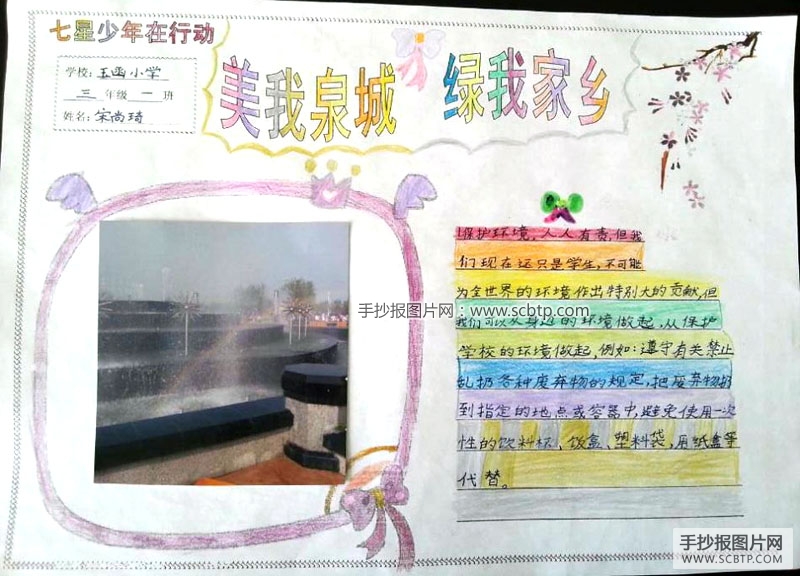 七星少年在行动
学校:玉函小学
三年级一班
姓名:宋尚琦
美我泉城 绿我家乡
保护环境,人人有责,但我
们现在还只是学生,不可能
为全世界的环境作出特别大的贡献,但
我们可以从身边的环境做起,从保护
学校的环境做起,例如:遵守有关禁止
乱扔各种废弃物的规定,把废弃物扔
到指定的地点或容器中,避免使用一次
性的饮料杯、饭盒、塑料袋,用纸盒等
代替。
手抄报图片网:www.scbtp.com
手抄报图片网
WWW.SCBTP.COM